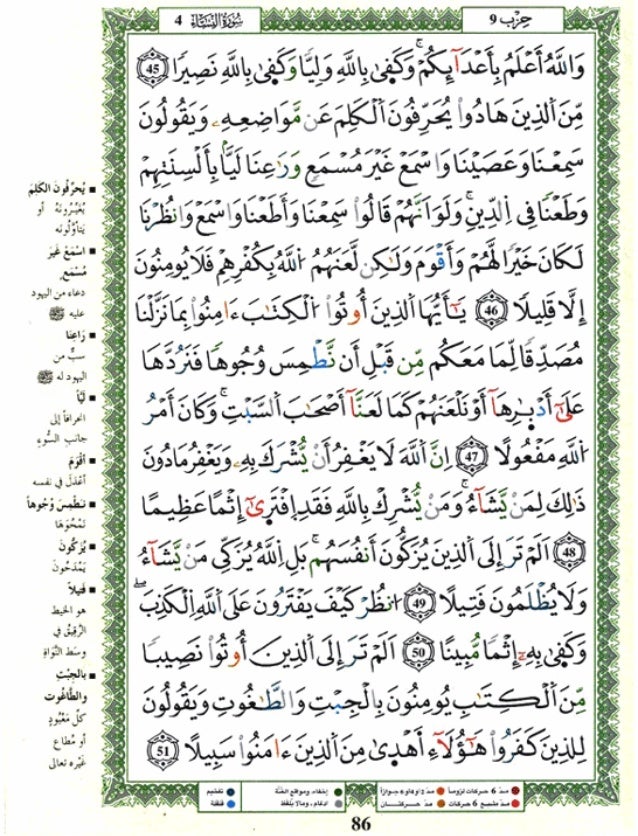 حِزب 9
سُورَةُ النِّسَاء 4
وَاللَّهُ أَعْلَمُ بِأَعْدَآئِكُمْ وَكَفَىٰ بِاللَّهِ وَلِيًّا وَكَفَىٰ بِاللَّهِ نَصِيرًا 45
مِّنَ اَلذِينَ هَادُواْ يُحَرِّفُونَ اَلْكَلِمَ عَن مَّوَاضِعِهِۦ وَيَقُولُونَ
سَمِعْنَا وَعَصَيْنَا وَاسْمَعْ غَيْرَ مُسْمَعٍ وَرَٰعِنَا لَيًّا بِأَلْسِنَتِهِمْ
وَطَعْنًا فِي اِلدِّينِ وَلَوَ اَنَّهُمْ قَالُواْ سَمِعْنَا وَأَطَعْنَا وَاسْمَعْ وَانظُرْنَا
لَكَانَ خَيْرًا لَّهُمْ وَأَقْوَمَ وَلَٰكِن لَّعَنَهُمُ اُللَّهُ بِكُفْرِهِمْ فَلَا يُومِنُونَ
إِلَّا قَلِيلًا 46 يَٰٓأَيُّهَا اَلذِينَ أُوتُواْ اُلْكِتَٰبَ ءَامِنُواْ بِمَا نَزَّلْنَا
مُصَدِّقًا لِّمَا مَعَكُم مِّن قَبْلِ أَن نَّطْمِسَ وُجُوهًا فَنَرُدَّهَا
عَلَىٰٓ أَدْبَٰرِهَآ أَوْ نَلْعَنَهُمْ كَمَا لَعَنَّآ أَصْحَٰبَ اَلسَّبْتِ وَكَانَ أَمْرُ
اُللَّهِ مَفْعُولًا 47 إِنَّ اَللَّهَ لَا يَغْفِرُ أَنْ يُّشْرَكَ بِهِۦ وَيَغْفِرُ مَا دُونَ
ذَٰلِكَ لِمَنْ يَّشَآءُ وَمَنْ يُّشْرِكْ بِاللَّهِ فَقَدِ اِفْتَرَىٰٓ إِثْمًا عَظِيمًا
48 اَلَمْ تَرَ إِلَى اَلذِينَ يُزَكُّونَ أَنفُسَهُم بَلِ اِللَّهُ يُزَكِّي مَنْ يَّشَآءُ
وَلَا يُظْلَمُونَ فَتِيلًا 49 اُنظُرْ كَيْفَ يَفْتَرُونَ عَلَى اَللَّهِ اِلْكَذِبَ
وَكَفَىٰ بِهِۦٓ إِثْمًا مُّبِينًا 50 اَلَمْ تَرَ إِلَى اَلذِينَ أُوتُواْ نَصِيبًا
مِّنَ اَلْكِتَٰبِ يُومِنُونَ بِالْجِبْتِ وَالطَّٰغُوتِ وَيَقُولُونَ
لِلذِينَ كَفَرُواْ هَٰٓؤُلَآءِ أَهْدَىٰ مِنَ اَلذِينَ ءَامَنُواْ سَبِيلًا 51
■ يُحَرِّفُونَ الكَلِمَ
يُغَيِّرُونَهُ أو
يَتَأوَّلُونَه
■ اسْمَعْ غَيْرَ
مُسْمَعٍ
دعاء من اليهود
عليه ﷺ
■ رَاعِنَا
سبٌّ من
اليهود له ﷺ
■ لَيًّا
انحرافاً إلى
جانب السُّوءِ
■ أقْوَمَ
أعْدَلَ في نفسه
■ نَطْمِسَ وُجُوهاً
نَمْحُوَهَا
■ يُزَكُّونَ
يَمْدَحُونَ
■ فَتِيلاً
هو الخيط
الرَّقِيقُ في
وسَطِ النَّوَاةِ
■ بالجِبْتِ
والطَّاغُوت
كلِّ مَعْبُودٍ
أو مُطَاعٍ
غَيْرِه تعالى
مدّ 6 حركات لزوماً مدّ 2 أو 4 أو 6 جوازاً
مدّ مشبع 6 حركات مدّ حركتان
إخفاء، ومواقع الغُنَّة
ادغام، وما لا يُلفَظ
تفخيم
قلقلة
86